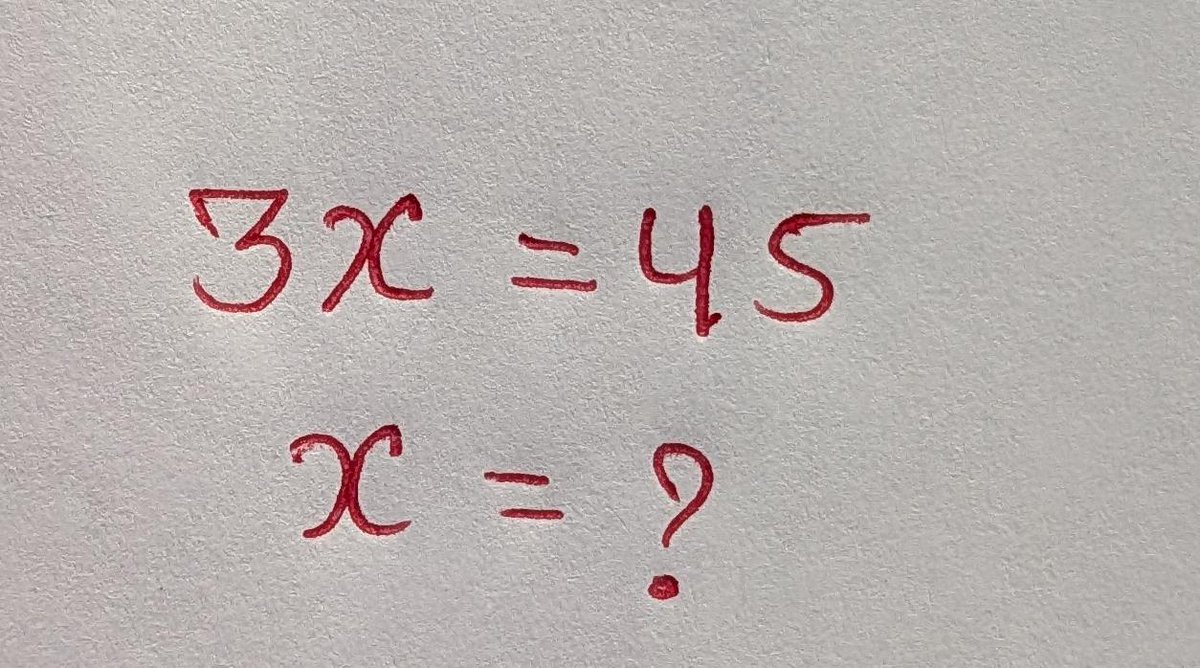 3x = 45
x = ?